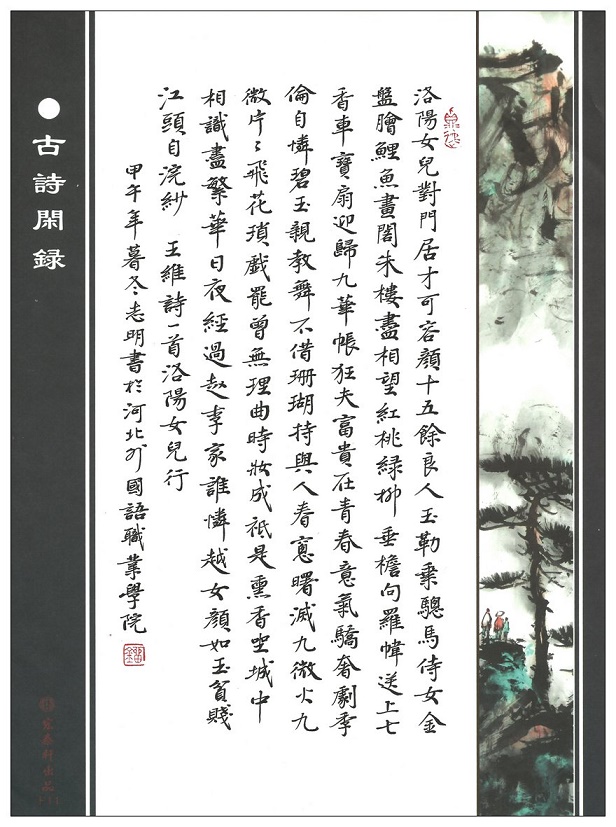 洛陽女兒對門居才可容顏十五餘良人玉勒乘驄馬侍女金
盤膾鯉魚畫閣朱樓盡相望紅桃綠柳垂檐向羅幃送上七
香車寶扇迎歸九華帳狂夫富貴在青春意氣驕奢劇季
倫自憐碧玉親教舞不借珊瑚持與人春窓曙滅九微火九
微片々飛花瑣戲罷曾無理曲時妝成祗是熏香坐城中
相識盡繁華日夜經過趙李家誰憐越女顏如玉貧賤
江頭自浣紗 王維詩一首洛陽女兒行
甲午年暮冬志明書於河北外國語職業學院
●古詩閑録